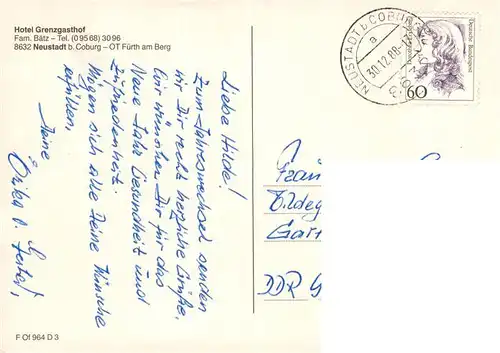 Hotel Grenzgasthof
Fam. Bätz – Tel. (0 95 68) 30 96
8632 Neustadt b. Coburg – OT Fürth am Berg
Liebe Hilde!
Zum Jahreswechsel senden
wir Dir recht herzliche Grüße.
Wir wünschen Dir für das
Neue Jahr Gesundheit und
Zufriedenheit.
Mögen sich alle Deine Wünsche
erfüllen.
Deine
Erika
NEUSTADT b COBURG
a
30.12.88
Deutsche Bundespost
60
Frau
Hildeg
DDR
F Of 964 D 3